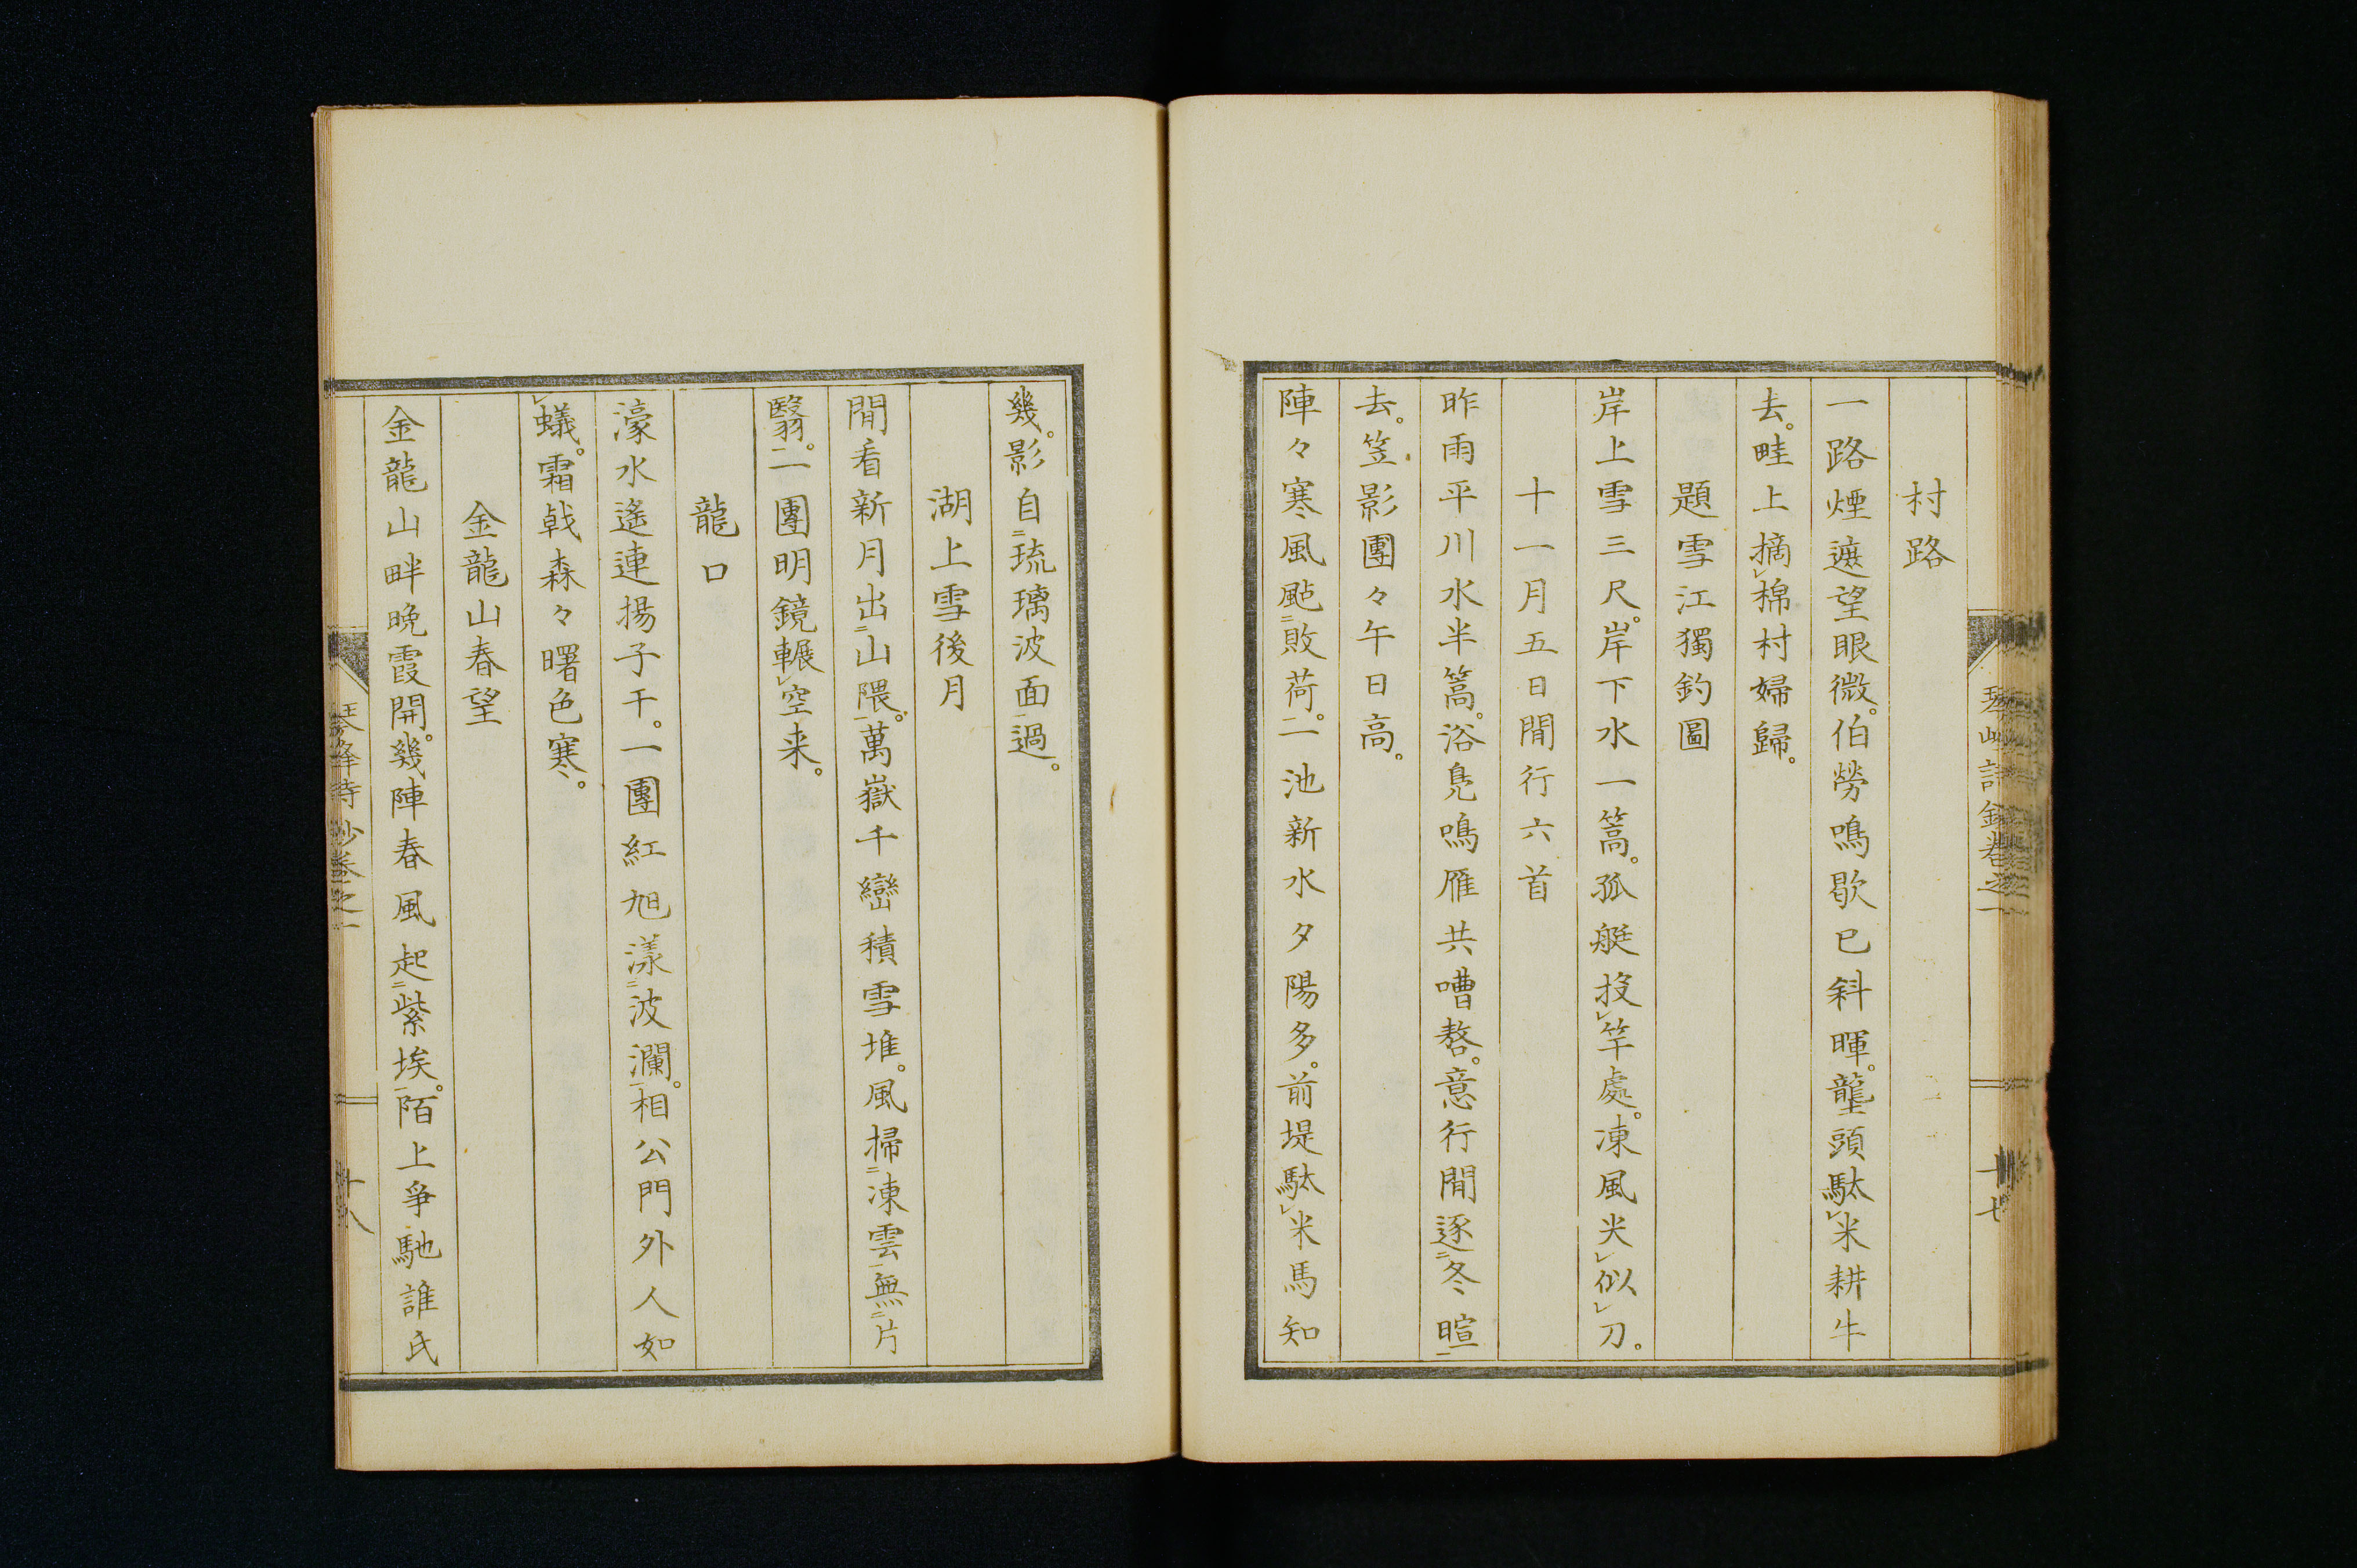 村路
一路煙遮望眼微。伯勞鳴歇已斜暉。壟頭駄㆑米耕牛
去。畦上摘㆑棉村婦歸。
題雪江獨釣圖
岸上雪三尺。岸下水一篙。孤艇投㆑竿處。凍風尖㆑似㆑刀。
十一月五日閒行六首
昨雨平川水半篙。浴鳧鳴雁共嘈嗸。意行閒逐㆓冬暄㆒
去。笠影團々午日高。
陣々寒風颭㆓敗荷㆒。一池新水夕陽多。前堤駄㆑米馬知
幾。影自㆓琉璃波面㆒過。
湖上雪後月
閒看新月出㆓山隈㆒。萬嶽千巒積雪堆。風掃㆓凍雲㆒無㆓片
翳㆒。一團明鏡輾㆑空来。
龍口
濠水遙連揚子干。一團紅旭漾㆓波瀾㆒。相公門外人如
㆑蟻。霜戟森々曙色寒。
金龍山春望
金龍山畔晩霞開。幾陣春風起㆓紫埃㆒。陌上爭馳誰氏
琴峰詩鈔卷之一
十八